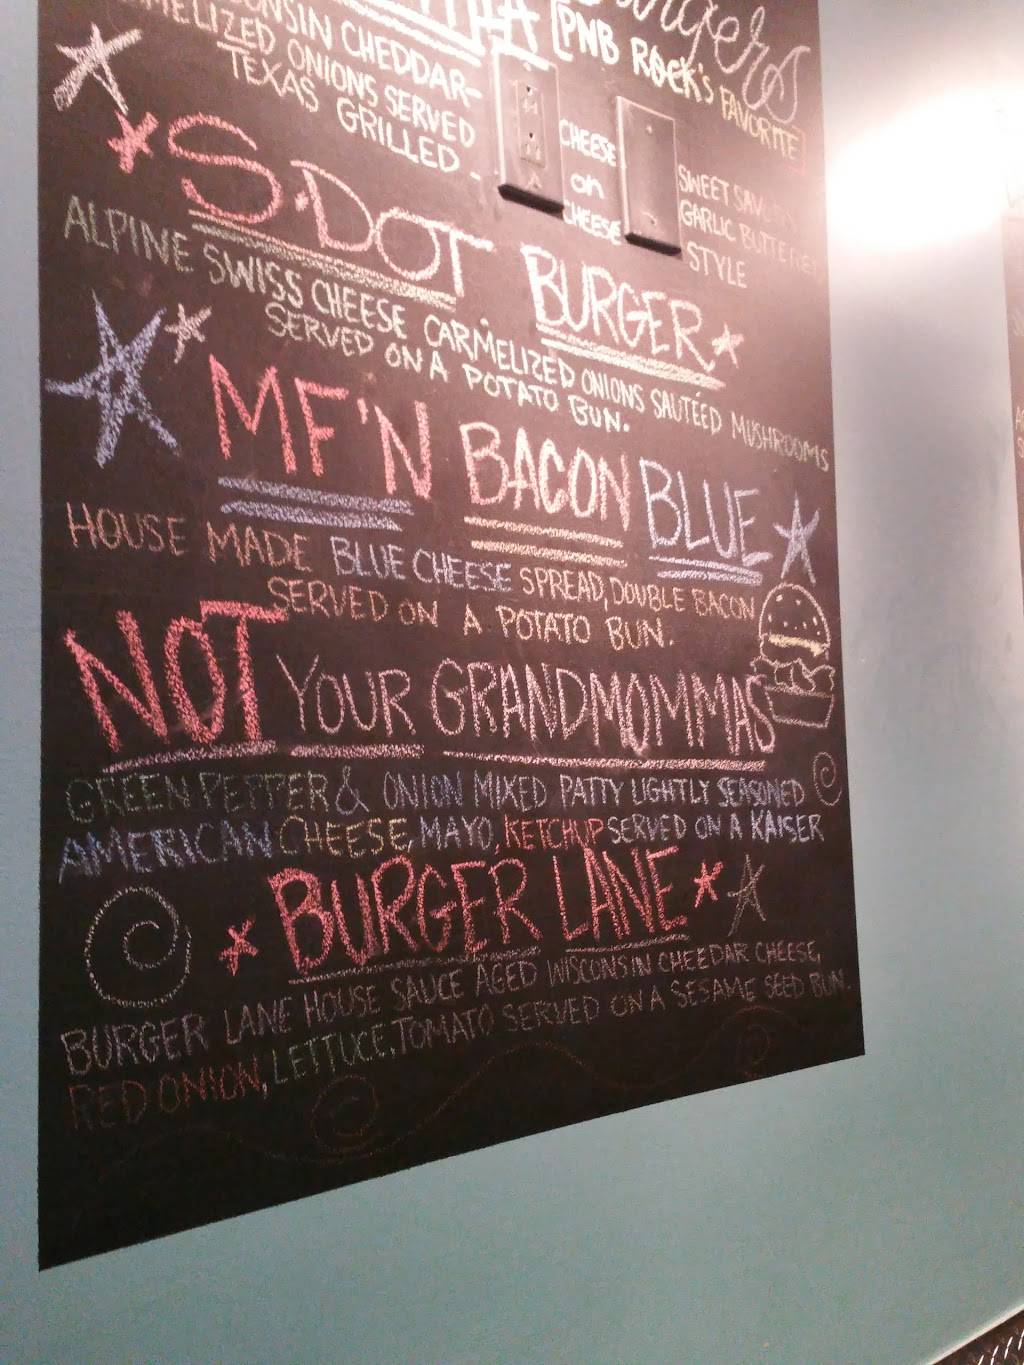 Burgers
[PNB ROCK'S FAVORITE]
CHEDDAR-
ONIONS SERVED
TEXAS GRILLED.
CHEESE
on
CHEESE
SWEET
GARLIC BUTTERED
STYLE
S.DOT BURGER
ALPINE SWISS CHEESE CARMELIZED ONIONS SAUTÉED MUSHROOMS
SERVED ON A POTATO BUN.
MF'N BACON BLUE
HOUSE MADE BLUE CHEESE SPREAD, DOUBLE BACON
SERVED ON A POTATO BUN.
NOT YOUR GRANDMOMMAS
GREEN PEPPER & ONION MIXED PATTY LIGHTLY SEASONED
AMERICAN CHEESE, MAYO, KETCHUP SERVED ON A KAISER
BURGER LANE
BURGER LANE HOUSE SAUCE AGED WISCONSIN CHEEDAR CHEESE,
RED ONION, LETTUCE, TOMATO SERVED ON A SESAME SEED BUN.